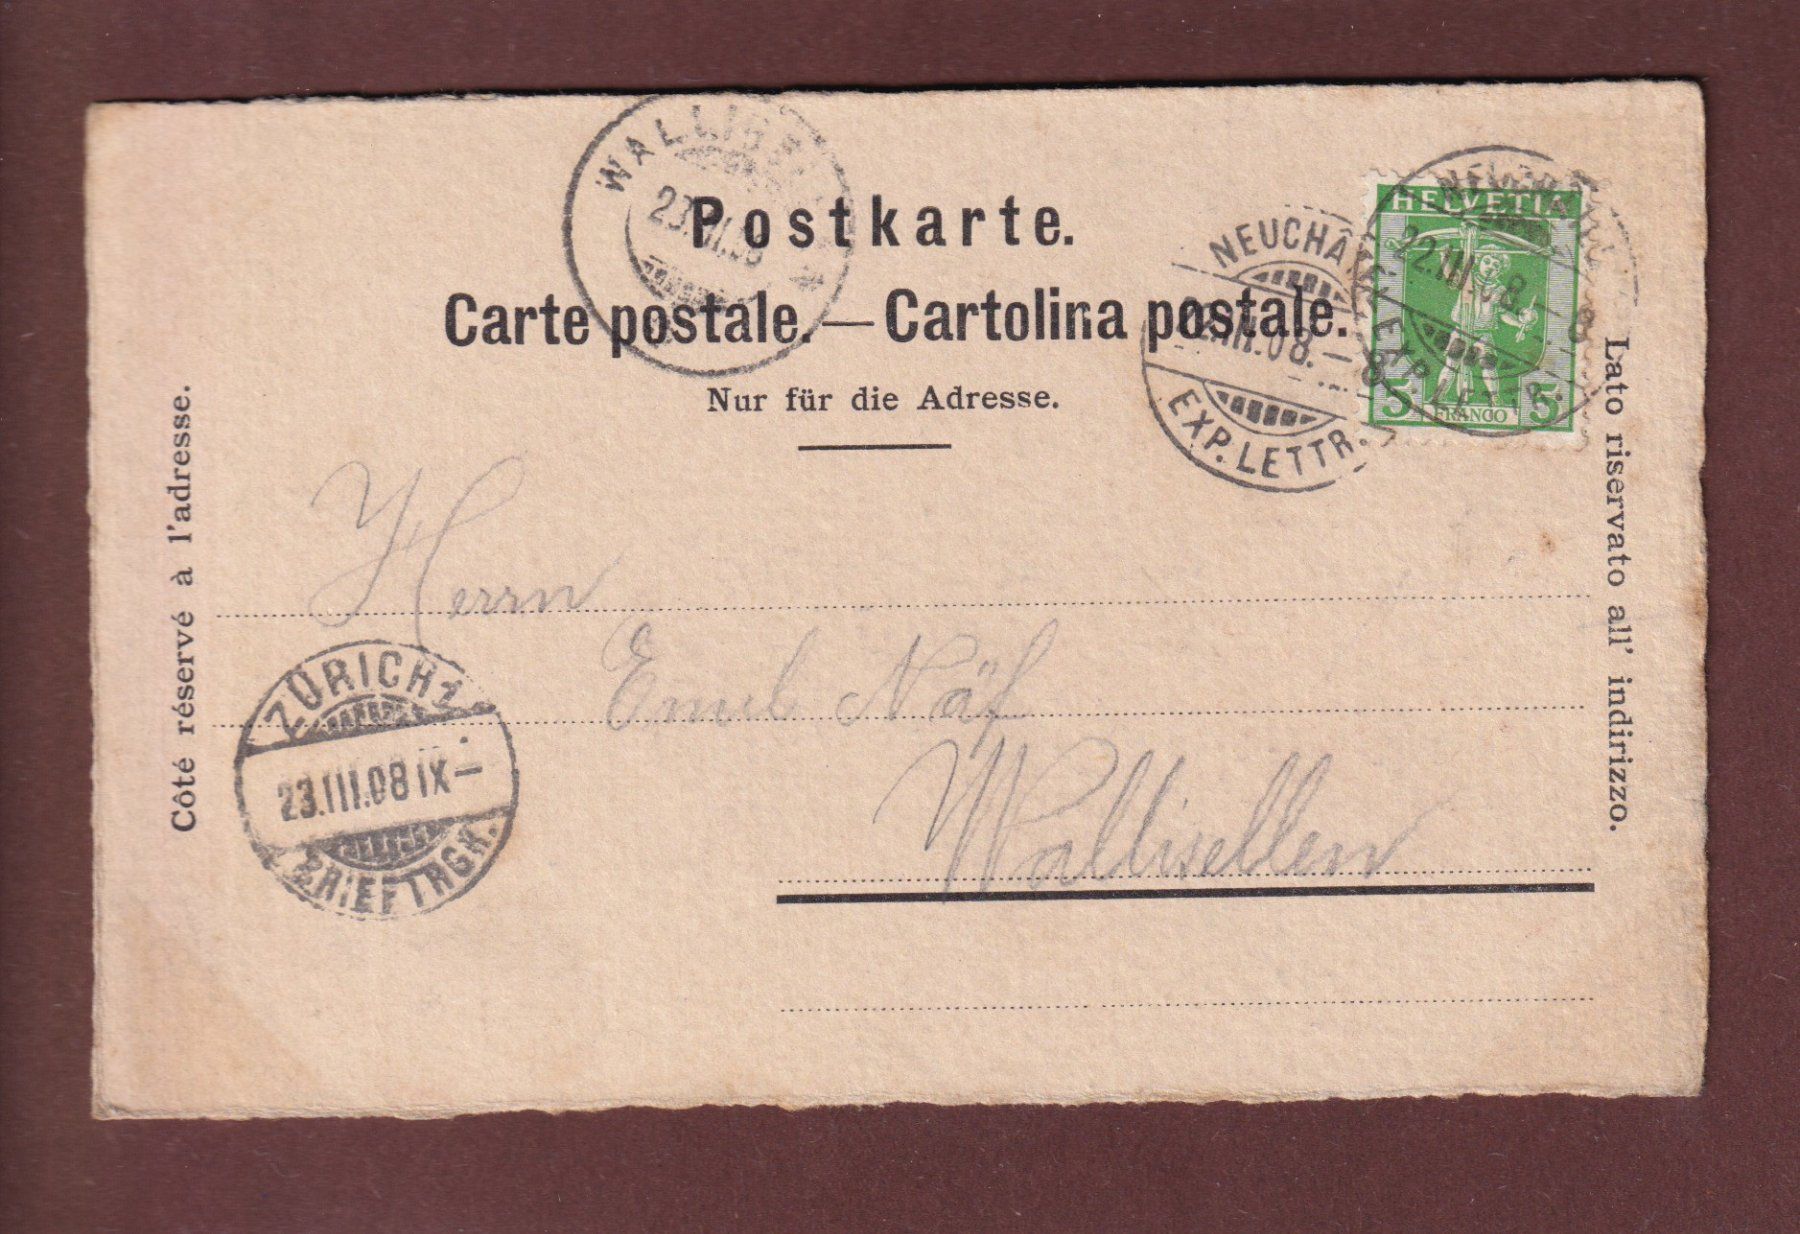 WALLISELLEN
23.III.08
Postkarte.
Carte postale. — Cartolina postale.
Nur für die Adresse.
HELVETIA
5 FRANCO 5
NEUCHATEL
22.III.08.–8
EXP. LETTR.
NEUCHATEL
22.III.08.–8
EXP. LETTR.
Côté réservé à l'adresse.
Lato riservato all' indirizzo.
Herrn
Emil Näf
Wallisellen
ZÜRICH 1
23.III.08 IX–
BRIEFTRGK.